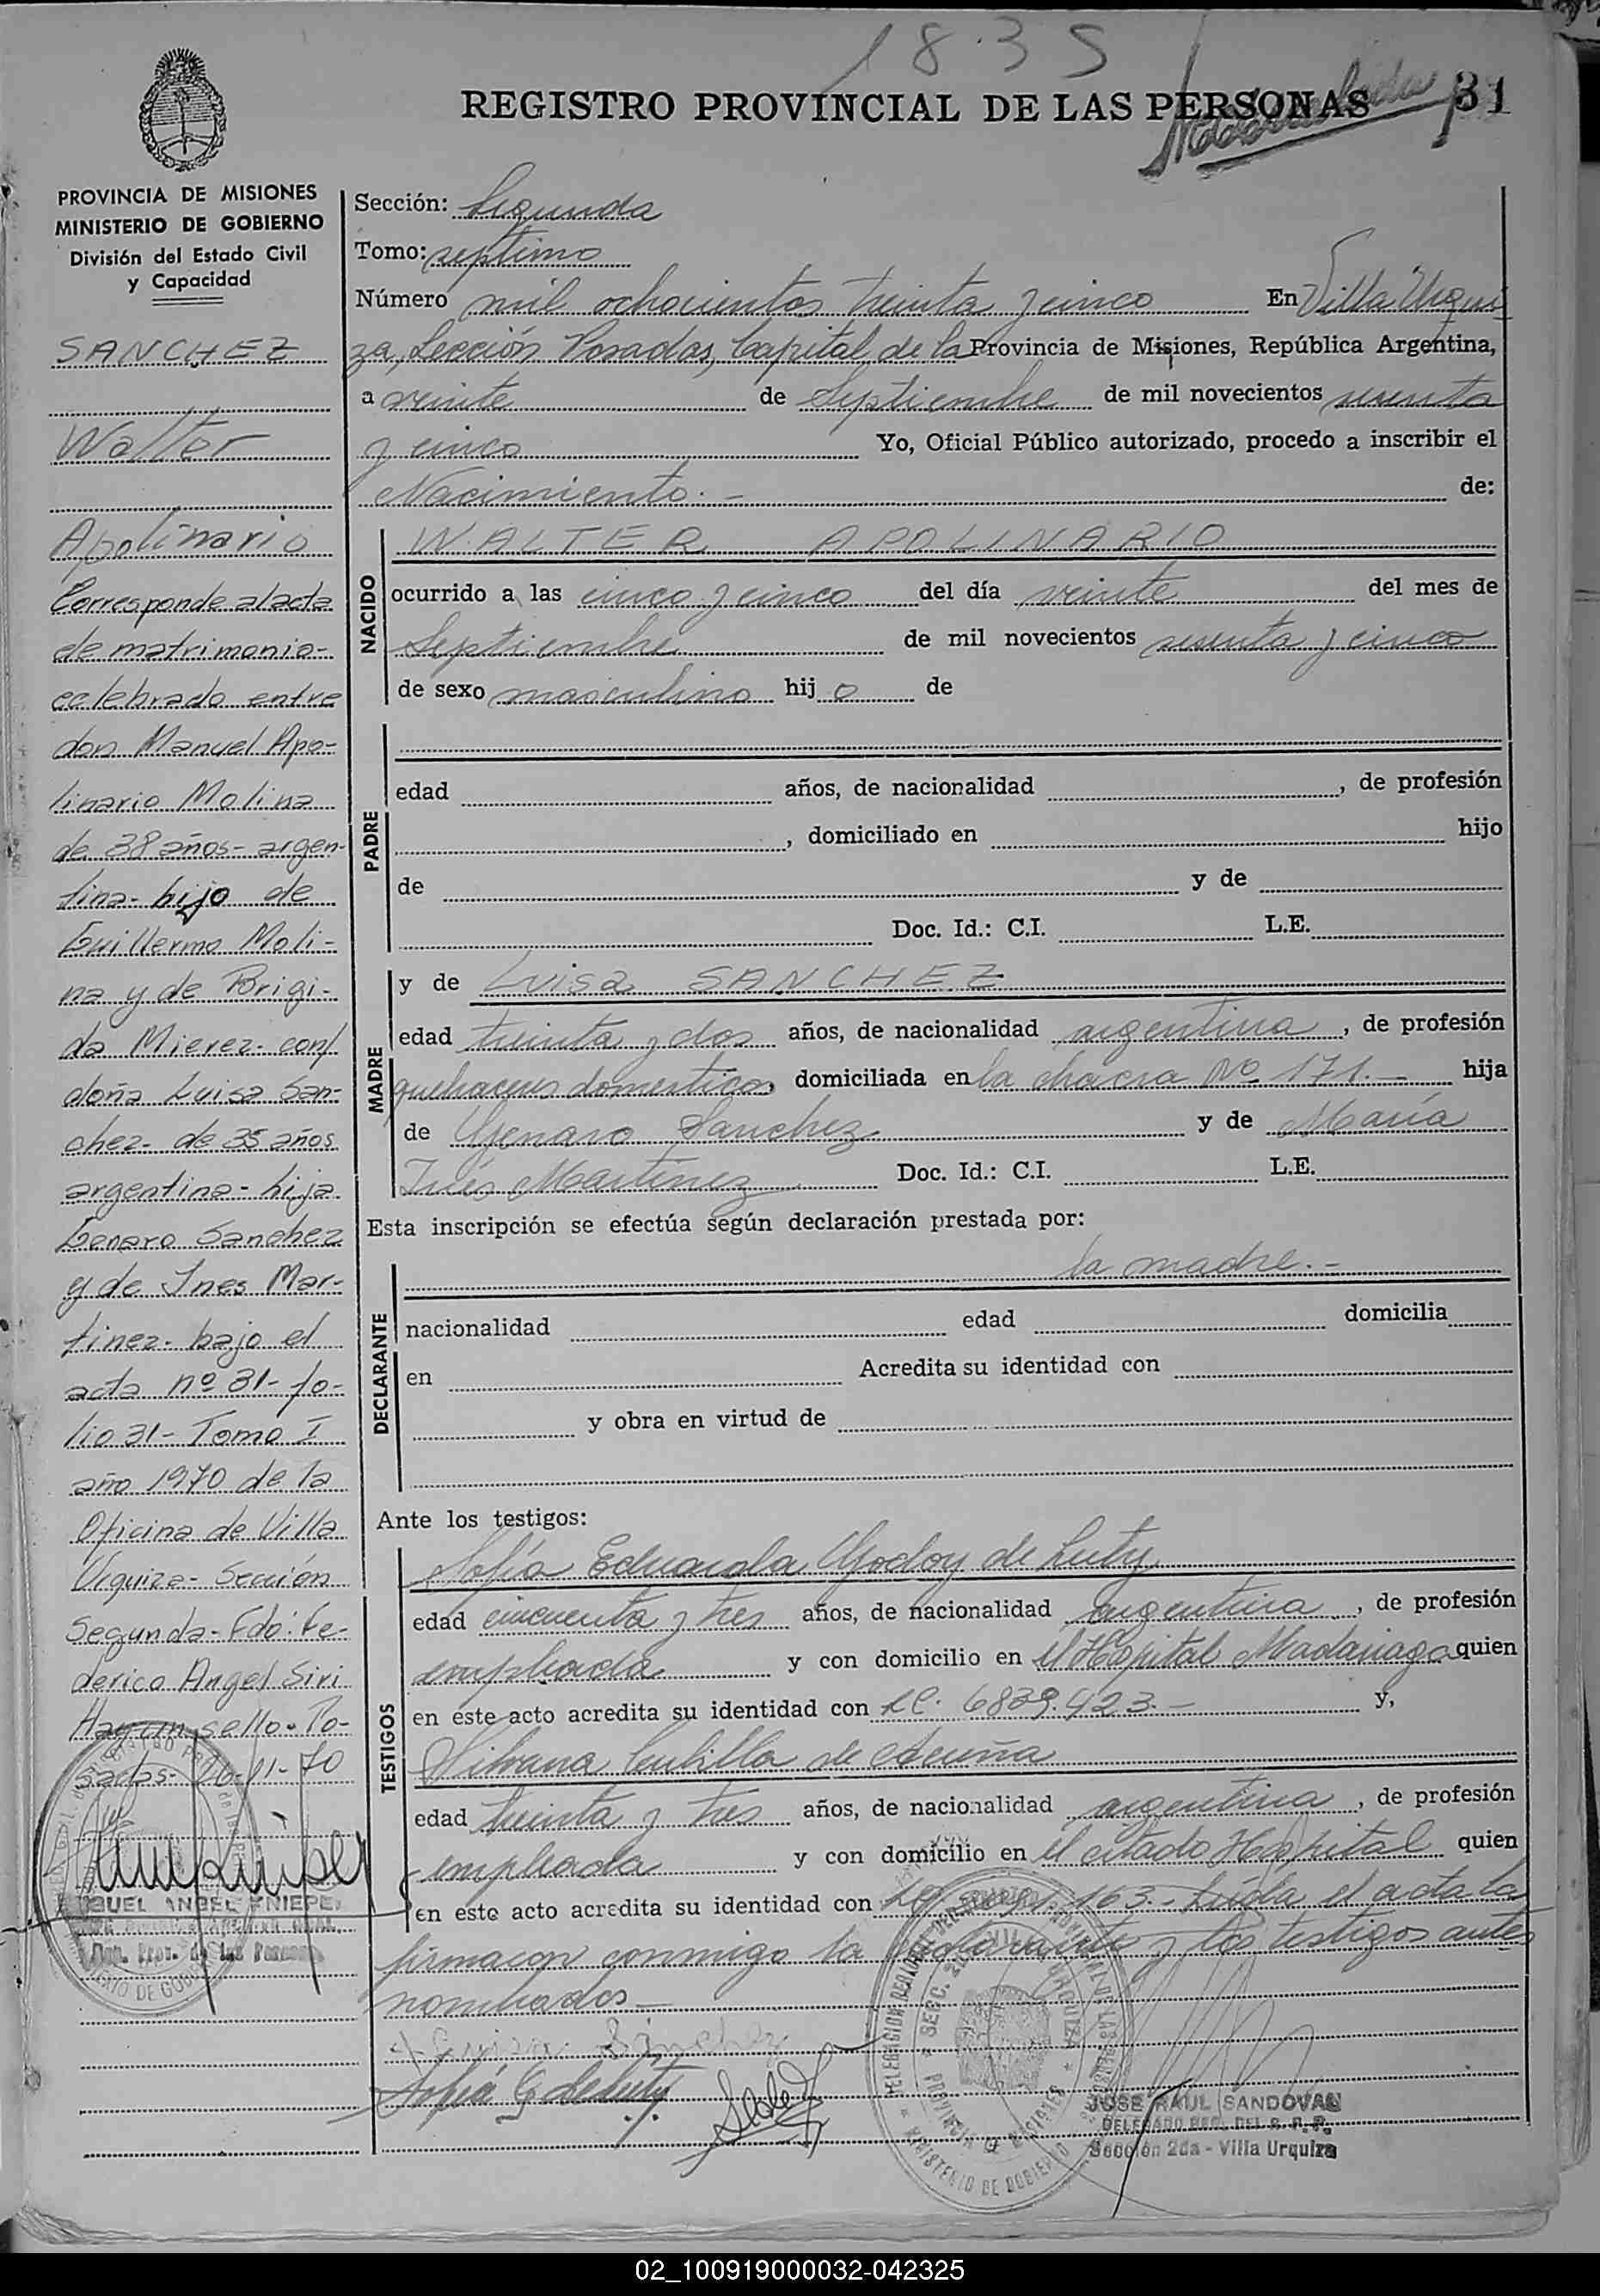 1835
REGISTRO PROVINCIAL DE LAS PERSONAS
31
PROVINCIA DE MISIONES
MINISTERIO DE GOBIERNO
División del Estado Civil
y Capacidad
SANCHEZ
Walter
Apolinario
Corresponde al acta
de matrimonio-
celebrado entre
don Manuel Apo-
linario Molina
de 38 años- argen-
tino- hijo de
Guillermo Moli-
na y de Brigi-
da Mierez- con/
doña Luisa San-
chez- de 35 años
argentina- hija
Genaro Sanchez
y de Ines Mar-
tinez- bajo el
acta nº 31- fo-
lio 31- Tomo I
año 1970 de la
Oficina de Villa
Urquiza- Sección
Segunda- Fdo: Fe-
derico Angel Siri
Hay un sello- Po-
sadas- 26-11-70
MIGUEL ANGEL KNIEPE
Sección: Segunda
Tomo: septimo
Número mil ochocientos treinta y cinco En Villa Urqui
za, Sección Posadas, Capital de la Provincia de Misiones, República Argentina,
a veinte de Septiembre de mil novecientos sesenta
y cinco Yo, Oficial Público autorizado, procedo a inscribir el
Nacimiento.- de:
NACIDO
WALTER APOLINARIO
ocurrido a las cinco y cinco del día veinte del mes de
Septiembre de mil novecientos sesenta y cinco
de sexo masculino hijo de
PADRE
edad años, de nacionalidad , de profesión
, domiciliado en hijo
de y de
Doc. Id.: C.I. L.E.
MADRE
y de Luisa SANCHEZ
edad treinta y dos años, de nacionalidad argentina, de profesión
quehaceres domesticos domiciliada en la chacra Nº 171.- hija
de Genaro Sanchez y de María
Inés Martínez Doc. Id.: C.I. L.E.
Esta inscripción se efectúa según declaración prestada por:
DECLARANTE
la madre.-
nacionalidad edad domicilia
en Acredita su identidad con
y obra en virtud de
Ante los testigos:
TESTIGOS
Sofía Eduarda Godoy de Luty
edad cincuenta y tres años, de nacionalidad argentina, de profesión
empleada y con domicilio en el Hospital Madariaga quien
en este acto acredita su identidad con LC. 6839.423.- y,
Cubilla de Acuña
edad treinta y tres años, de nacionalidad argentina, de profesión
empleada y con domicilio en el citado Hospital quien
en este acto acredita su identidad con 163.- Leída el acta la
firmaron conmigo la declarante y los testigos antes
nombrados-
Luisa Sánchez
Sofía G de Luty
JOSE RAUL SANDOVAL
DELEGADO REG. DEL R. P. P.
Sección 2da - Villa Urquiza
02_100919000032-042325